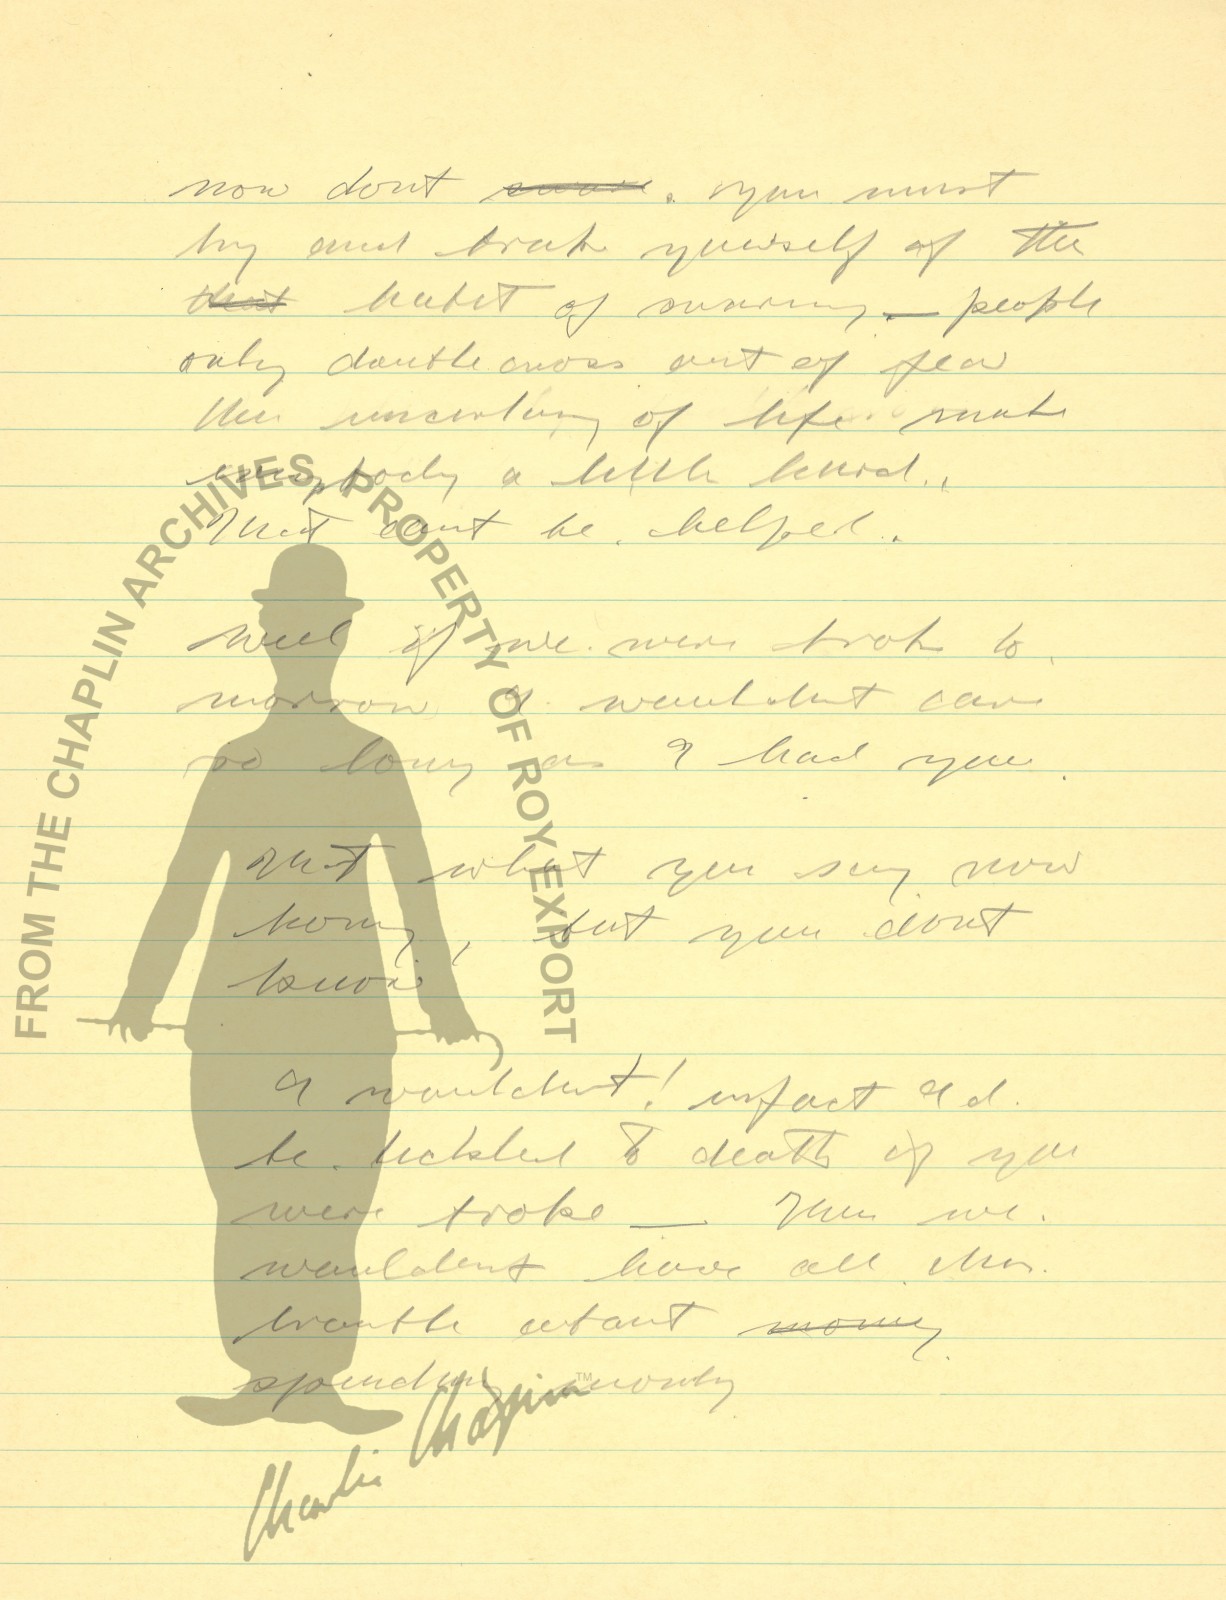 now dont swear. you must
try and brake yourself of the
that habit of swearing — people
only double cross out of fear
the uncertainty of life make
everybody a little
That cant be helped.
well if we were broke to
morrow I wouldent care
so long as I had you.
That what you say now
honey, but you dont
know
I wouldent! infact I d.
be tickled to death if you
were broke — Then we.
wouldent have all this
trouble about money
spending monly
FROM THE CHAPLIN ARCHIVES, PROPERTY OF ROY EXPORT
Charlie Chaplin TM